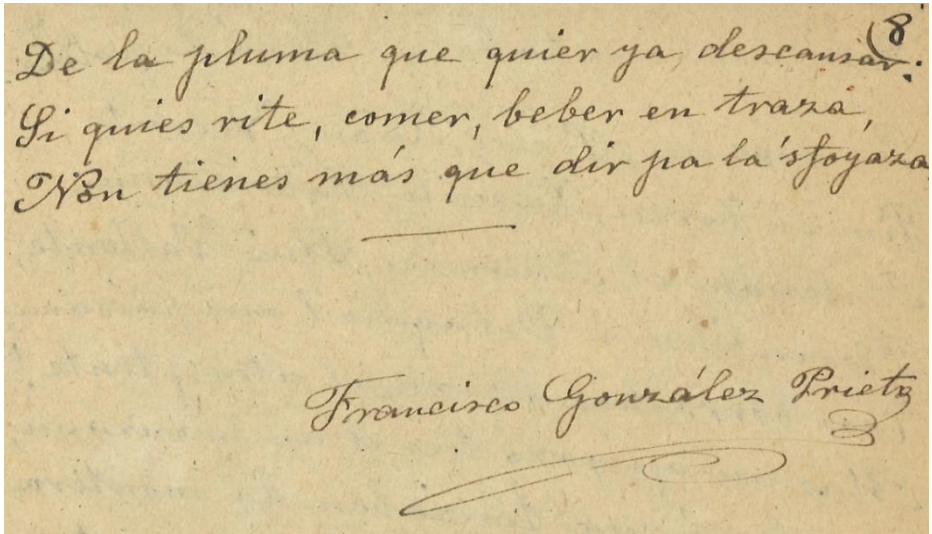 8
De la pluma que quier ya descansar:
Si quies rite, comer, beber en traza,
Non tienes más que dir pa la 'sfoyaza
Francisco González Prieto